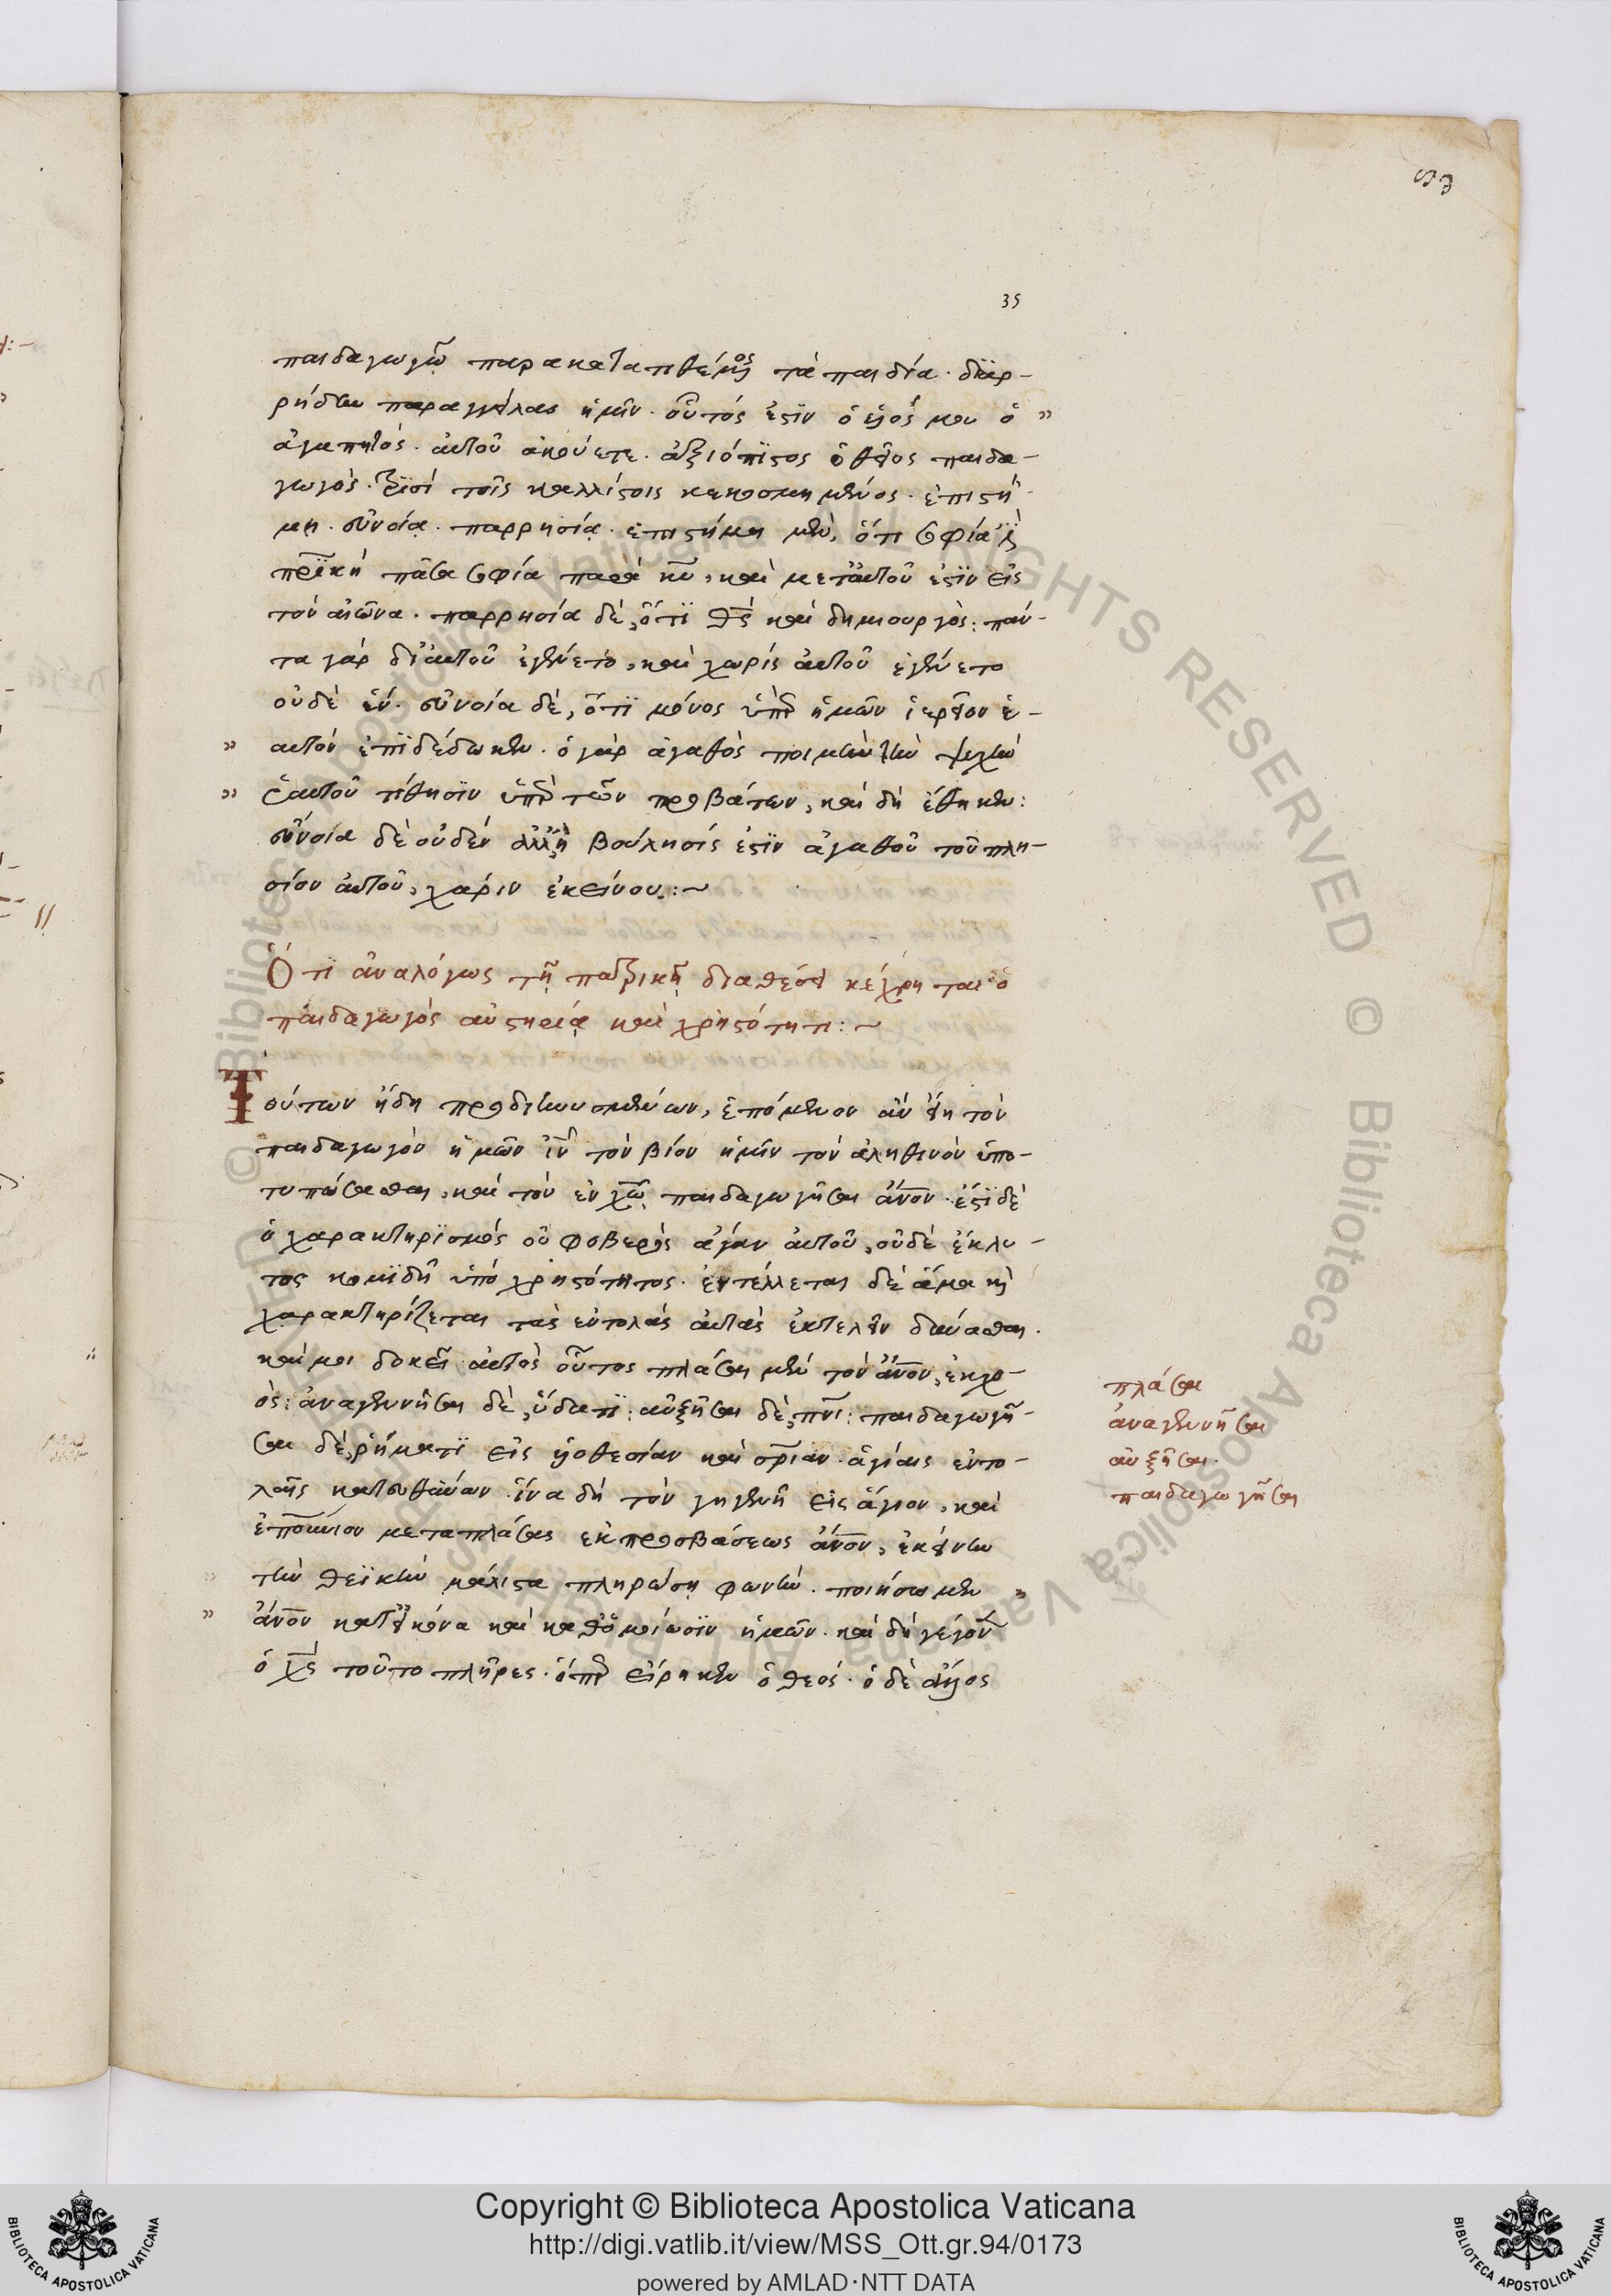 35
παιδαγωγῷ παρακατατιθέμενος τὰ παιδία. διαρ-
ρήδην παραγγείλας ἡμῖν. οὗτός ἐστιν ὁ υἱός μου ὁ
ἀγαπητός. αὐτοῦ ἀκούετε. ἀξιόπιστος ὁ θεῖος παιδα-
γωγὸς. τρισὶ τοῖς καλλίστοις κεκοσμημένος. ἐπιστή-
μη. εὐνοίᾳ. παρρησίᾳ. ἐπιστήμη μὲν, ὅτι σοφία ἐστὶ
πρϊκή πᾶσα σοφία παρὰ κυ, καὶ μετ' αὐτοῦ ἐστιν εἰς
τὸν αἰῶνα. παρρησία δὲ, ὅτι θς καὶ δημιουργὸς: πάν-
τα γὰρ δι' αὐτοῦ ἐγένετο, καὶ χωρὶς αὐτοῦ ἐγένετο
οὐδὲ ἕν. εὐνοία δὲ, ὅτι μόνος ὑπὲρ ἡμῶν ἱερεῖον ἑ-
αυτὸν ἐπιδέδωκεν. ὁ γὰρ ἀγαθὸς ποιμὴν τὴν ψυχὴν
ἑαυτοῦ τίθησιν ὑπὲρ τῶν προβάτων, καὶ δὴ ἔθηκεν:
εὔνοια δὲ οὐδὲν ἀλλ' ἢ βούλησίς ἐστιν ἀγαθοῦ τοῦ πλη-
σίον αὐτοῦ, χάριν ἐκείνου:~
Ὅτι ἀναλόγως τῇ πατρικῇ διαθέσει κέχρηται ὁ
παιδαγωγὸς αὐστηρίᾳ καὶ χρηστότητι:~
Τούτων ἤδη προδιηνυσμένων, ἑπόμενον ἂν εἴη τὸν
παιδαγωγὸν ἡμῶν ιν τὸν βίον ἡμῖν τὸν ἀληθινὸν ὑπο-
τυπώσασθαι, καὶ τὸν ἐν χω παιδαγωγῆσαι ἄνον. ἔστι δὲ
ὁ χαρακτηρισμὸς οὐ φοβερὸς ἄγαν αὐτοῦ, οὐδὲ ἔκλυ-
τος κομιδῇ ὑπὸ χρηστότητος. ἐντέλλεται δὲ ἅμα καὶ
χαρακτηρίζεται τὰς ἐντολὰς αὐτὰς ἐκτελεῖν δύνασθαι.
καί μοι δοκεῖ αὐτὸς οὗτος πλάσαι μὲν τὸν ἄνον, ἐκ χο-
ός: ἀναγεννῆσαι δὲ, ὕδατι: αὐξῆσαι δὲ, πνι: παιδαγωγῆ-
σαι δὲ, ῥήματι εἰς υἱοθεσίαν καὶ σριαν. ἁγίαις ἐντο-
λαῖς κατευθύνων. ἵνα δὴ τὸν γηγενῆ εἰς ἅγιον, καὶ
ἐπουνιον μεταπλάσας ἐκ προσβάσεως ἄνον, ἐκείνην
τὴν θεϊκὴν μάλιστα πληρώσῃ φωνήν. ποιήσωμεν
ἄνον κατ' εἰκόνα καὶ καθ' ὁμοίωσιν ἡμῶν. καὶ δὴ γέγονεν
ὁ χς τοῦτο πλῆρες. ὅπερ εἴρηκεν ὁ θεός. ὁ δὲ ἄλλος
πλάσαι
ἀναγεννῆσαι
αὐξῆσαι.
παιδαγωγῆσαι
Copyright © Biblioteca Apostolica Vaticana
http://digi.vatlib.it/view/MSS_Ott.gr.94/0173
powered by AMLAD·NTT DATA
BIBLIOTECA APOSTOLICA VATICANA
BIBLIOTECA APOSTOLICA VATICANA